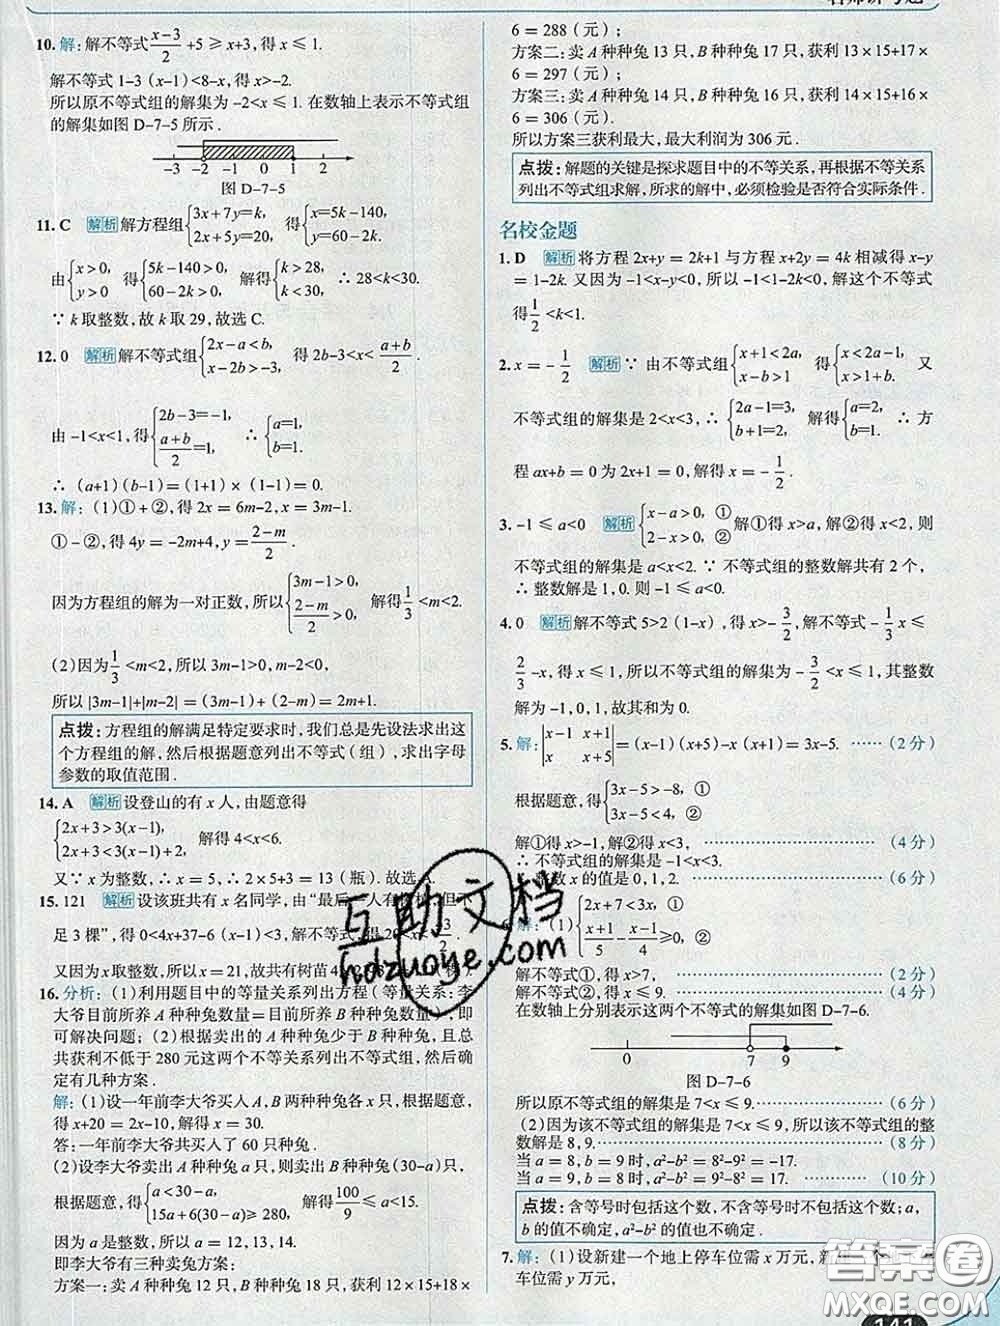 10. 解:解不等式(x-3)/2+5≥x+3,得x≤1.
解不等式1-3(x-1)<8-x,得x>-2.
所以原不等式组的解集为-2<x≤1.在数轴上表示不等式组
的解集如图D-7-5所示.
-3 -2 -1 0 1 2
图D-7-5
11. C 解析 解方程组{3x+7y=k, 2x+5y=20, 得{x=5k-140, y=60-2k.
由{x>0, y>0 得{5k-140>0, 60-2k>0, 解得{k>28, k<30. ∴28<k<30.
∵k取整数,故k取29,故选C.
12. 0 解析 解不等式组{2x-a<b, x-2b>-3, 得2b-3<x<(a+b)/2.
由-1<x<1,得{2b-3=-1, (a+b)/2=1, ∴{a=1, b=1.
∴(a+1)(b-1)=(1+1)×(1-1)=0.
13. 解:(1)①+②,得2x=6m-2,x=3m-1.
①-②,得4y=-2m+4,y=(2-m)/2.
因为方程组的解为一对正数,所以{3m-1>0, (2-m)/2>0, 解得1/3<m<2.
(2)因为1/3<m<2,所以3m-1>0,m-2<0,
所以|3m-1|+|m-2|=(3m-1)+(2-m)=2m+1.
点拨:方程组的解满足特定要求时,我们总是先设法求出这
个方程组的解,然后根据题意列出不等式(组),求出字母
参数的取值范围.
14. A 解析 设登山的有x人,由题意得
{2x+3>3(x-1), 2x+3<3(x-1)+2, 解得4<x<6.
又∵x为整数,∴x=5,∴2×5+3=13(瓶).故选A.
15. 121 解析 设该班共有x名同学,由“最后
足3棵”,得0<4x+37-6(x-1)<3,解不等式,得20
又因为x取整数,所以x=21,故共有树苗
16. 分析:(1)利用题目中的等量关系列出方程(等量关系:李
大爷目前所养A种种兔数量=目前所养B种种兔数量),即
可解决问题;(2)根据卖出的A种种兔少于B种种兔,且总
共获利不低于280元这两个不等关系列出不等式组,然后确
定有几种方案.
解:(1)设一年前李大爷买入A,B两种种兔各x只,根据题意,
得x+20=2x-10,解得x=30.
答:一年前李大爷共买入了60只种兔.
(2)设李大爷卖出A种种兔a只,则卖出B种种兔(30-a)只.
根据题意,得{a<30-a, 15a+6(30-a)≥280. 解得100/9≤a<15.
因为a是整数,所以a=12,13,14.
即李大爷有三种卖兔方案:
方案一:卖A种种兔12只,B种种兔18只,获利12×15+18×
6=288(元);
方案二:卖A种种兔13只,B种种兔17只,获利13×15+17×
6=297(元);
方案三:卖A种种兔14只,B种种兔16只,获利14×15+16×
6=306(元).
所以方案三获利最大,最大利润为306元.
点拨:解题的关键是探求题目中的不等关系,再根据不等关系
列出不等式组求解,所求的解中,必须检验是否符合实际条件.
名校金题
1. D 解析 将方程2x+y=2k+1与方程x+2y=4k相减得x-y
=1-2k.又因为-1<x-y<0,所以-1<1-2k<0,解这个不等式
得1/2<k<1.
2. x=-1/2 解析 ∵由不等式组{x+1<2a, x-b>1 得{x<2a-1, x>b+1. 又
不等式组的解集是2<x<3,∴{2a-1=3, b+1=2, 解得{a=2, b=1. ∴方
程ax+b=0为2x+1=0,解得x=-1/2.
3. -1≤a<0 解析 {x-a>0,① 2-x>0,② 解①得x>a,解②得x<2,则
不等式组的解集是a<x<2.∵不等式组的整数解共有2个,
∴整数解是1,0,则-1≤a<0.
4. 0 解析 解不等式5>2(1-x),得x>-3/2,解不等式-1/3x≤
2/3-x,得x≤1,所以不等式组的解集为-3/2<x≤1,其整数
解为-1,0,1,故其和为0.
5. 解:|x-1 x+1; x x+5|=(x-1)(x+5)-x(x+1)=3x-5. ……(2分)
根据题意,得{3x-5>-8,① 3x-5<4,②
解①得x>-1,解②得x<3, …………(4分)
∴不等式组的解集是-1<x<3.
数x的值是0,1,2. …………(6分)
解:(1){2x+7<3x,① (x+1)/5-(x-9)/4≥0,②
解不等式①得x>7, …………(2分)
解不等式②得x≤9. …………(4分)
在数轴上分别表示这两个不等式的解集如图D-7-6.
0 7 9
图D-7-6
所以原不等式组的解集是7<x≤9. …………(6分)
(2)因为该不等式组的解集是7<x≤9,所以该不等式组的整
数解是8,9. …………(8分)
当a=8,b=9时,a²-b²=8²-9²=-17.
当a=9,b=8时,a²-b²=9²-8²=17. …………(10分)
点拨:含等号时包括这个数,不含等号时不包括这个数;a,
b的值不确定,a²-b²的值也不确定.
7. 解:(1)设新建一个地上停车位需x万元,新
车位需y万元,
141
互助文档
hdzuoye.com
答案圈
MXQE.COM